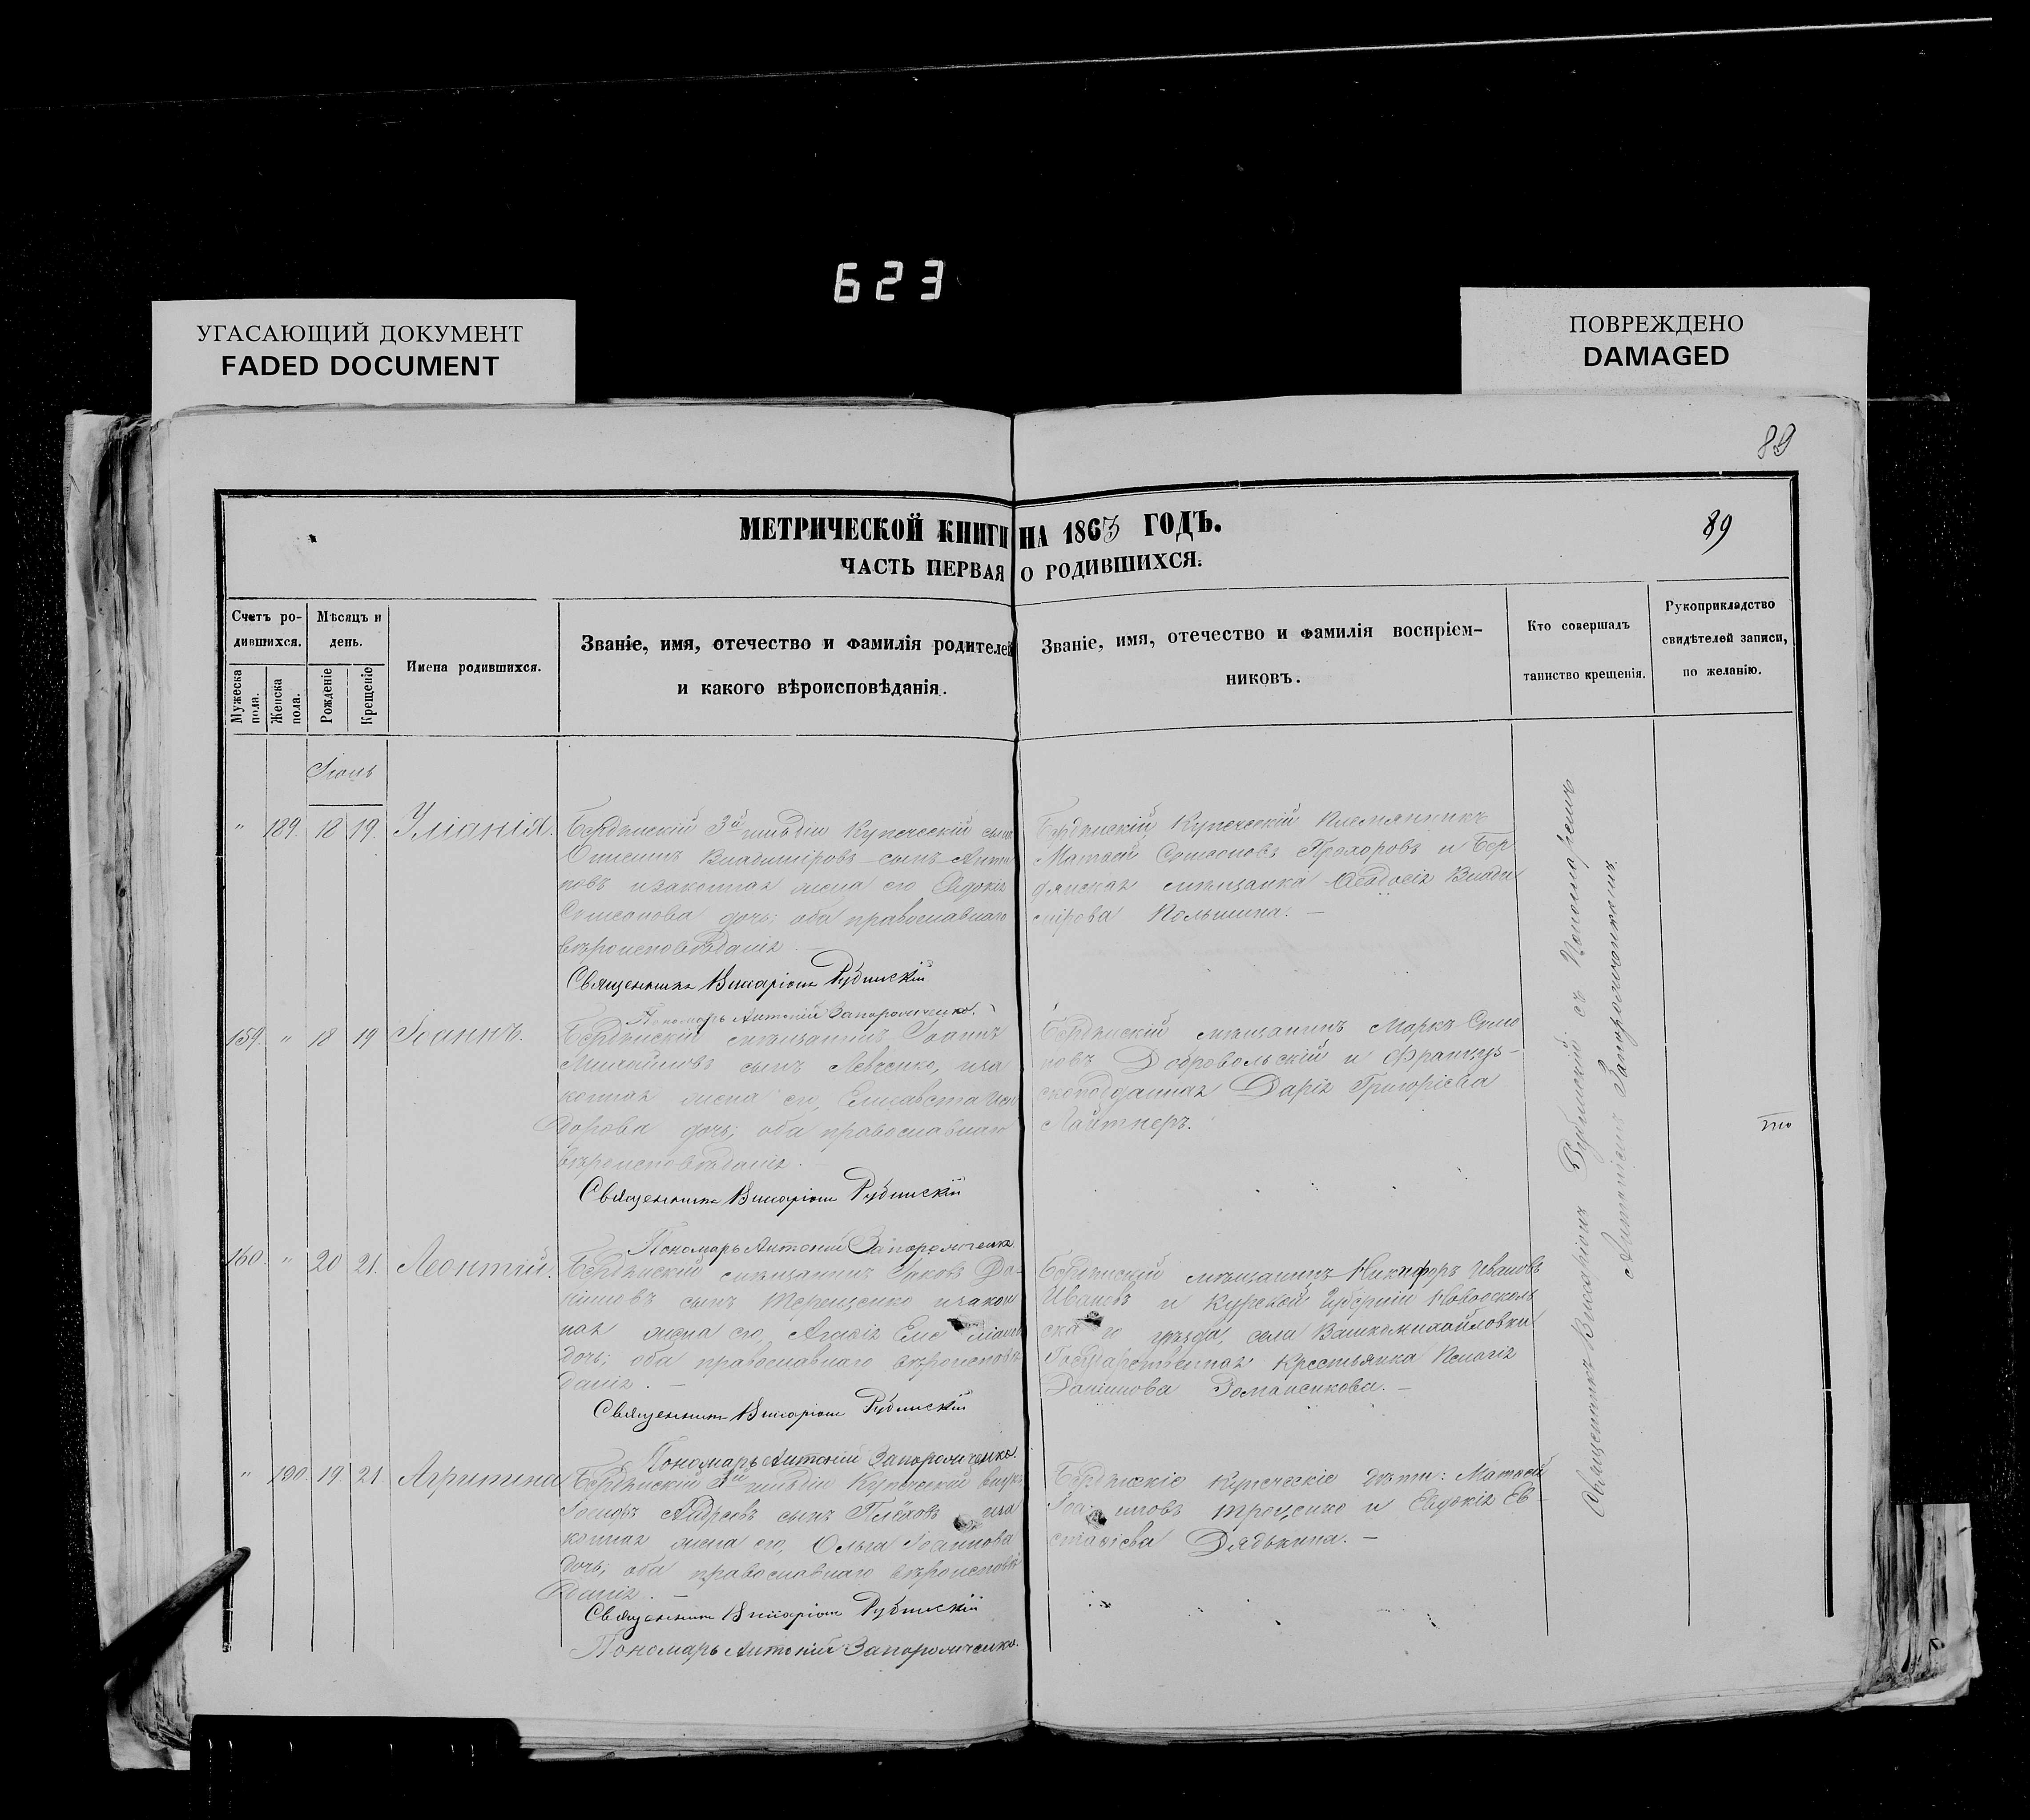 623
УГАСАЮЩИЙ ДОКУМЕНТ
FADED DOCUMENT
ПОВРЕЖДЕНО
DAMAGED
89
МЕТРИЧЕСКОЙ КНИГИ НА 1863 ГОДЪ.
89
ЧАСТЬ ПЕРВАЯ О РОДИВШИХСЯ.
Счетъ ро-
дившихся.
Мужеска пола.
Женска пола.
Мѣсяцъ и
день.
Рожденіе
Крещеніе
Имена родившихся.
Званіе, имя, отечество и фамилія родителей
и какого вѣроисповѣданія.
Званіе, имя, отечество и фамилія воспріем-
никовъ.
Кто совершалъ
таинство крещенія.
Рукоприкладство
свидѣтелей записи,
по желанію.
" 189. 18 19. Уліанія.
Бердянскій 3й гильдіи Купеческій сынъ
Владиміровъ сынъ
законная жена его Евдокія
Сомсонова дочь; оба православнаго
вѣроисповѣданія.
Священникъ Виссаріонъ Рубинскій
Пономарь Антоній Запорожченко.
Бердянскій Купеческій Племянникъ
Матвей Сомсоновъ Прохоровъ и Бер
дянская мѣщанка Ѳеодосія Влади
мірова
159. " 18 19 Іоаннъ.
Бердянскій мѣщанинъ Іоаннъ
Михайловъ сынъ Левченко, иза
конная жена его, Елисавета Иси
дорова дочь; оба православнаго
вѣроисповѣданія.
Священникъ Виссаріонъ Рубинскій
Пономарь Антоній Запорожченко.
Бердянскій мѣщанинъ Маркъ Симо
новъ Добровольскій и Француз-
скоподданная Дарія Григоріева
Лайтнеръ.
160. " 20 21. Леонтій.
Бердянскій мѣщанинъ Іяковъ Да-
ніиловъ сынъ Терещенко изакон
ная жена его,
дочь; оба православнаго вѣроисповѣ
данія. —
Священникъ Виссаріонъ Рубинскій
Пономарь Антоній Запорожченко.
Бердянскій мѣщанинъ Никифоръ Ивановъ
Ивановъ и Курской Губерніи Новооскол
скаго уѣзда, села
Государственная Крестьянка Пелагія
Даніилова —
" 190. 19 21 Агрипина
Бердянскій 3й гильдіи Купеческій внукъ
Іосифъ Андреевъ сынъ Плёховъ иза
конная жена его, Ольга Іоаннова
дочь; оба православнаго вѣроисповѣ
данія. —
Священникъ Виссаріонъ Рубинскій
Пономарь Антоній Запорожченко.
Бердянскіе Купеческіе дѣти: Матвей
Троценко и Евдокія Ев-
стафіева Дядькина. —
Священникъ Виссаріонъ Рубинскій съ Пономаремъ
Антоніемъ Запорожченкомъ.